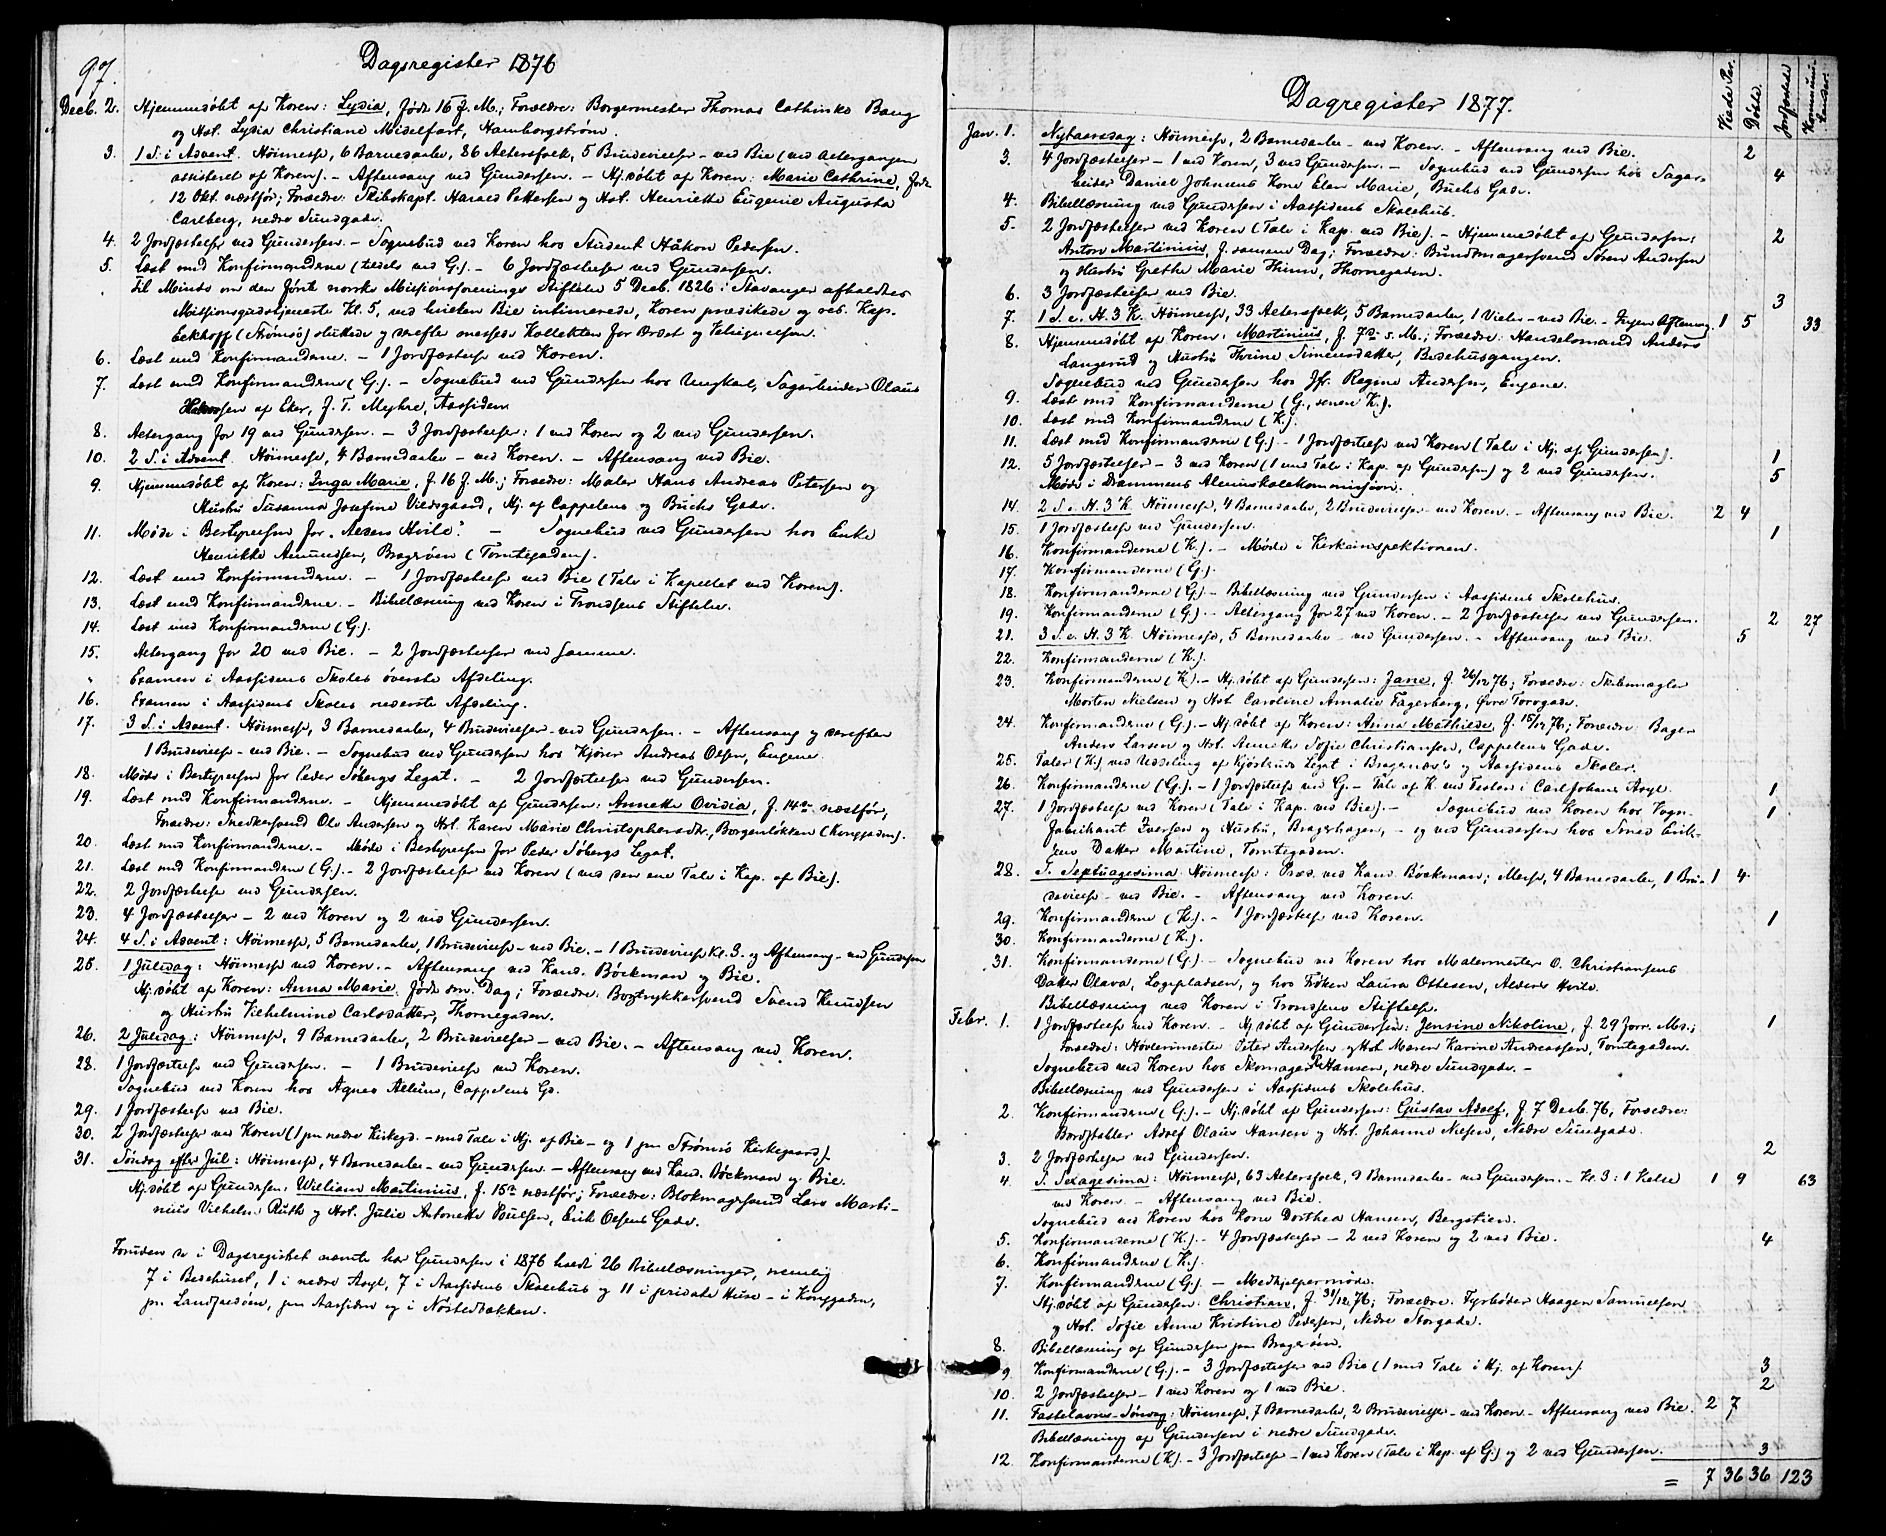 97.
Dagsregister 1876
Decb. 2. Hjemmedøbt af Koren: Lydia, født 16 f. M.; Forældre: Borgermester Thomas Cathinko Bang
og Hst. Lydia Christiane Midelfart, Hamborgstrøm.
3. 1 S. i Advent. Høimesse, 6 Barnedaab, 86 Altersfolk, 5 Brudevielser – ved Bie (ved Altergangen
assisteret af Koren). – Aftensang ved Gundersen. – Hj.døbt af Koren: Marie Cathrine, født
12 Okt. næstfør; Forældre: Skibskapt. Harald Pettersen og Hst. Henriette Eugenie Augusta
Carlberg, nedre Sundgade.
4. 2 Jordfæstelser ved Gundersen. – Sognebud ved Koren hos Student Håkon Pedersen.
5. Læst med Konfirmanderne (tildels ved G.). – 6 Jordfæstelser ved Gundersen.
Til Minde om den første norske Missionsforenings Stiftelse 5 Decb. 1826 i Stavanger afholdtes
Missionsgudstjeneste Kl. 5, ved hvilken Bie intimerede, Koren prædikede og res. Kap.
Eckhoff (Strømsø) sluttede og derefter messede Kollekten for Ordet og Velsignelsen.
6. Læst med Konfirmanderne. – 1 Jordfæstelse ved Koren.
7. Læst med Konfirmanderne (G.). – Sognebud ved Gundersen hos Ungkarl, Sagarbeider Olaus
af Eker, f. T. Myhre, Aassiden
8. Altergang for 19 ved Gundersen. – 3 Jordfæstelser: 1 ved Koren og 2 ved Gundersen.
10. 2 S. i Advent. Høimesse, 4 Barnedaab – ved Koren. – Aftensang ved Bie.
9. Hjemmedøbt af Koren: Inga Marie, f. 16 f. M.; Forældre: Maler Hans Andreas Petersen og
Hustru Susanna Josefine Vildsgaard, Hj. af Cappelens og Buchs Gade.
11. Møde i Bestyrelsen for „Alders Hvile". – Sognebud ved Gundersen hos Enke
Henrikke Amundsen, Bragerøen (Tomtegaden).
12. Læst med Konfirmanderne. – 1 Jordfæstelse ved Bie (Tale i Kapellet ved Koren).
13. Læst med Konfirmanderne. – Bibellæsning ved Koren i Trondsens Stiftelse.
14. Læst med Konfirmanderne (G.).
15. Altergang for 20 ved Bie. – 2 Jordfæstelser ved samme.
" Examen i Aassidens Skoles øverste Afdeling.
16. Examen i Aassidens Skoles nederste Afdeling.
17. 3 S. i Advent. Høimesse, 3 Barnedaab, 4 Brudevielser – ved Gundersen. – Aftensang og derefter
1 Brudevielse – ved Bie. – Sognebud ved Gundersen hos Kjører Andreas Olsen, Engene.
18. Møde i Bestyrelsen for Peder Søbergs Legat. – 2 Jordfæstelser ved Gundersen.
19. Læst med Konfirmanderne. – Hjemmedøbt af Gundersen: Annette Ovidia, f. 14de næstfør,
Forældre: Snedkersvend Ole Andersen og Hst. Karen Marie Christophersdr., Borgenløkken (Konggaden).
20. Læst med Konfirmanderne. – Møde i Bestyrelsen for Peder Søbergs Legat.
21. Læst med Konfirmanderne (G.). – 2 Jordfæstelser ved Koren (ved den ene Tale i Kap. af Bie).
22. 2 Jordfæstelser ved Gundersen.
23. 4 Jordfæstelser – 2 ved Koren og 2 ved Gundersen.
24. 4 S. i Advent: Høimesse, 5 Barnedaab, 1 Brudevielse – ved Bie. – 1 Brudevielse Kl. 3. og Aftensang – ved Gundersen
25. 1 Juledag: Høimesse ved Koren. – Aftensang ved Kand. Böckman og Bie.
Hj.døbt af Koren: Anna Marie, født sm. Dag; Forældre: Bogtrykkersvend Svend Knudsen
og Hustru Vilhelmine Carlsdatter, Thornegaden.
26. 2 Juledag: Høimesse, 9 Barnedaab, 2 Brudevielser – ved Bie. – Aftensang ved Koren.
28. 1 Jordfæstelse ved Gundersen. – 1 Brudevielse ved Koren.
Sognebud ved Koren hos Agnes Allum, Cappelens Gd.
29. 1 Jordfæstelse ved Bie.
30. 2 Jordfæstelser ved Koren (1 paa nedre Kirkegd. – med Tale i Hj. af Bie – og 1 paa Strømsø Kirkegaard).
31. Søndag efter Jul: Høimesse, 4 Barnedaab – ved Gundersen. – Aftensang ved Kand. Böckman og Bie.
Hj.døbt af Gundersen, William Martinius, f. 15de næstfør; Forældre: Blokmagersvend Lars Marti-
nius Vilhelm Ruth og Hst. Julie Antonette Poulsen, Erik Olsens Gade.
Foruden de i Dagsregistret nævnte har Gundersen i 1876 holdt 26 Bibellæsninger, nemlig
7 i Bedehuset, 1 i nedre Asyl, 7 i Aassidens Skolehus og 11 i private Huse – i Konggaden,
paa Landfaldøen, paa Aassiden og i Nøstedbakken.
Dagregister 1877.
Viede Par. Døbte. Jordfæstede Kommuni-
kanter.
Jan. 1. Nytaarsdag: Høimesse, 2 Barnedaab – ved Koren. – Aftensang ved Bie. 2
3. 4 Jordfæstelser – 1 ved Koren, 3 ved Gundersen. – Sognebud ved Gundersen hos Sagar- 4
beider Daniel Johnsens Kone Elen Marie, Buchs Gade.
4. Bibellæsning ved Gundersen i Aassidens Skolehus.
5. 2 Jordfæstelser ved Koren (Tale i Kap. ved Bie). – Hjemmedøbt af Gundersen: 2
Anton Martinius, f. samme Dag; Forældre: Bundtmagersvend Søren Andersen
og Hustru Grethe Marie Thime, Thornegaden.
6. 3 Jordfæstelser ved Bie. 3
7. 1 S. e. H. 3 K. Høimesse, 33 Altersfolk, 5 Barnedaab, 1 Vielse – ved Bie. – Ingen Aftensang. 1 5 33
8. Hjemmedøbt af Koren: Martinius, f. 7de s. M.; Forældre: Handelsmand Anders
Langerud og Hustru Thrine Simensdatter, Bedehusgangen.
Sognebud ved Gundersen hos Jfr. Regine Andersen, Engene.
9. Læst med Konfirmanderne (G., senere K.).
10. Læst med Konfirmanderne (K.).
11. Læst med Konfirmanderne (G.). – 1 Jordfæstelse ved Koren (Tale i Hj. af Gundersen). 1
12. 5 Jordfæstelser – 3 ved Koren (1 med Tale i Kap. af Gundersen) og 2 ved Gundersen. 5
Møde i Drammens Almueskolekommission.
14. 2 S. e. H. 3 K. Høimesse, 4 Barnedaab, 2 Brudevielser – ved Koren. – Aftensang ved Bie. 2 4
15. 1 Jordfæstelse ved Gundersen. 1
16. Konfirmanderne (K.). – Møde i Kirkeinspektionen.
17. Konfirmanderne (G.).
18. Konfirmanderne (G.) – Bibellæsning ved Gundersen i Aassidens Skolehus.
19. Konfirmanderne (G.) – Altergang for 27 ved Koren. – 2 Jordfæstelser ved Gundersen. 2 27
21. 3 S. e. H. 3 K. Høimesse, 5 Barnedaab – ved Gundersen. – Aftensang ved Bie. 5
22. Konfirmanderne (K.).
23. Konfirmanderne (K.). – Hj.døbt af Gundersen: Jane, f. 26/12 76; Forældre: Skibsmægler
Morten Nielsen og Hst. Caroline Amalie Fagerberg, Øvre Torvgade.
24. Konfirmanderne (G.). – Hj.døbt af Koren: Anna Mathilde, f. 15/12 76; Forældre: Bager
Anders Larsen og Hst. Annette Sofie Christiansen, Cappelens Gade.
25. Taler (K.) ved Uddeling af Kjøstruds Legat i Bragernæs's og Aassidens Skoler.
26. Konfirmanderne (G.). – 1 Jordfæstelse ved G. – Tale af K. ved Festen i Carl Johans Asyl. 1
27. 1 Jordfæstelse ved Koren (Tale i Kap. ved Bie). – Sognebud ved Koren hos Vogn- 1
fabrikant Iversen og Hustru, Bragerhagen, – og ved Gundersen hos Smed Erik-
sens Datter Martine, Tomtegaden.
28. S. Septuagesima. Høimesse: Præd. ved Kand. Böckman; Messe, 4 Barnedaab, 1 Bru- 1 4
devielse – ved Bie. – Aftensang ved Koren.
29. Konfirmanderne (K.). – 1 Jordfæstelse ved Koren. 1
30. Konfirmanderne (K.).
31. Konfirmanderne (G.). – Sognebud ved Koren hos Malermester O. Christiansens
Datter Olava, Løgepladsen, og hos Frøken Laura Ottesen, Alders Hvile.
Bibellæsning ved Koren i Trondsens Stiftelse.
Febr. 1. 1 Jordfæstelse ved Koren. – Hj.døbt af Gundersen: Jensine Nikoline, f. 29 Jan. Md.; 1
Forældre: Høvlerimester Peter Andersen og Hst. Maren Karine Andreassen, Tomtegaden.
Sognebud ved Koren hos Skomager Hansen, nedre Sundgade. –
Bibellæsning ved Gundersen i Aassidens Skolehus.
2. Konfirmanderne (G.). – Hj.døbt af Gundersen: Gustav Adolf, f. 7 Decb. 76, Forældre:
Bordstabler Adolf Olaus Hansen og Hst. Johanne Nilsen, Nedre Sundgade.
3. 2 Jordfæstelser ved Gundersen. 2
4. S. Sexagesima: Høimesse, 63 Altersfolk, 9 Barnedaab – ved Gundersen. – Kl. 3: 1 Vielse 1 9 63
ved Koren. – Aftensang ved Bie.
Sognebud ved Koren hos Kone Dorthea Hansen, Bergstien.
5. Konfirmanderne (K.). – 4 Jordfæstelser – 2 ved Koren og 2 ved Bie. 4
6. Konfirmanderne (K.).
7. Konfirmanderne (G.). – Medhjelpermøde.
Hj.døbt af Gundersen: Christian, f. 31/12 76; Forældre: Fyrbøder Haagen Samuelsen
og Hst. Sofie Anne Kristine Pedersen, Nedre Storgade.
8. Bibellæsning af Gundersen paa Bragerøen.
9. Konfirmanderne (G.). – 3 Jordfæstelser ved Bie (1 med Tale i Hj. af Koren) 3
10. 2 Jordfæstelser – 1 ved Koren og 1 ved Bie. 2
11. Fastelavns-Søndag: Høimesse, 7 Barnedaab, 2 Brudevielse – ved Koren. – Aftensang ved Bie. 2 7
Bibellæsning af Gundersen i nedre Sundgade.
12. Konfirmanderne (K.). – 3 Jordfæstelse – 1 ved Koren (Tale i Kap. af G.) og 2 ved Gundersen. 3
= 7 36 36 123